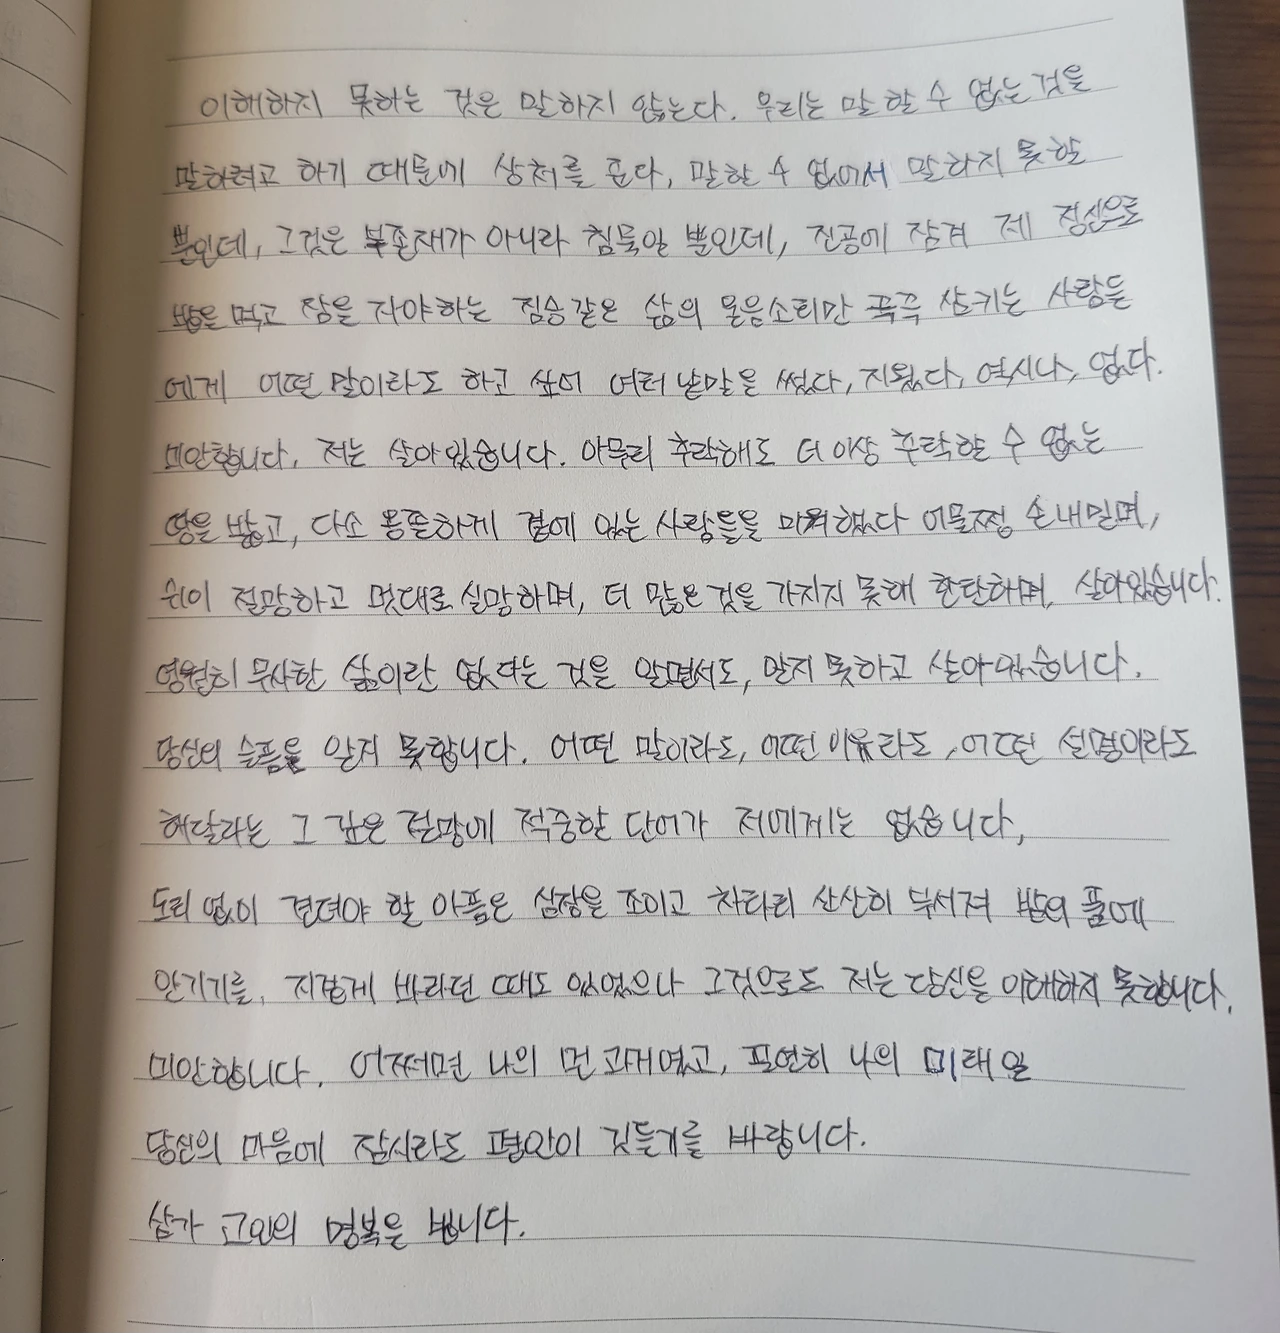 이해하지 못하는 것은 말하지 않는다. 우리는 말 할 수 없는 것을
말하려고 하기 때문에 상처를 준다, 말할 수 없어서 말하지 못할
뿐인데, 그것은 부존재가 아니라 침묵일 뿐인데, 진공에 잠겨 제 정신으로
밥을 먹고 잠을 자야하는 짐승같은 삶의 울음소리만 꾹꾹 삼키는 사람들
에게 어떤 말이라도 하고 싶어 여러 낱말을 썼다, 지웠다, 역시나, 없다.
미안합니다. 저는 살아있습니다. 아무리 추락해도 더 이상 추락할 수 없는
땅을 밟고, 다소 뚱하게 곁에 있는 사람들을 미워했다 어물쩡 손내밀며,
쉬이 절망하고 멋대로 실망하며, 더 많은 것을 가지지 못해 한탄하며, 살아있습니다.
영원히 무사한 삶이란 없다는 것을 알면서도, 믿지 못하고 살아있습니다.
당신의 슬픔을 알지 못합니다. 어떤 말이라도, 어떤 이유라도, 어떤 설명이라도
해달라는 그 깊은 절망에 적중할 단어가 저에게는 없습니다,
도리 없이 견뎌야 할 아픔은 심장을 조이고 차라리 산산히 부서져 밤의 품에
안기기를, 지겹게 바라던 때도 있었으나 그것으로도 저는 당신을 이해하지 못합니다.
미안합니다. 어쩌면 나의 먼 과거였고, 필연히 나의 미래일
당신의 마음에 잠시라도 평안이 깃들기를 바랍니다.
삼가 고인의 명복을 빕니다.